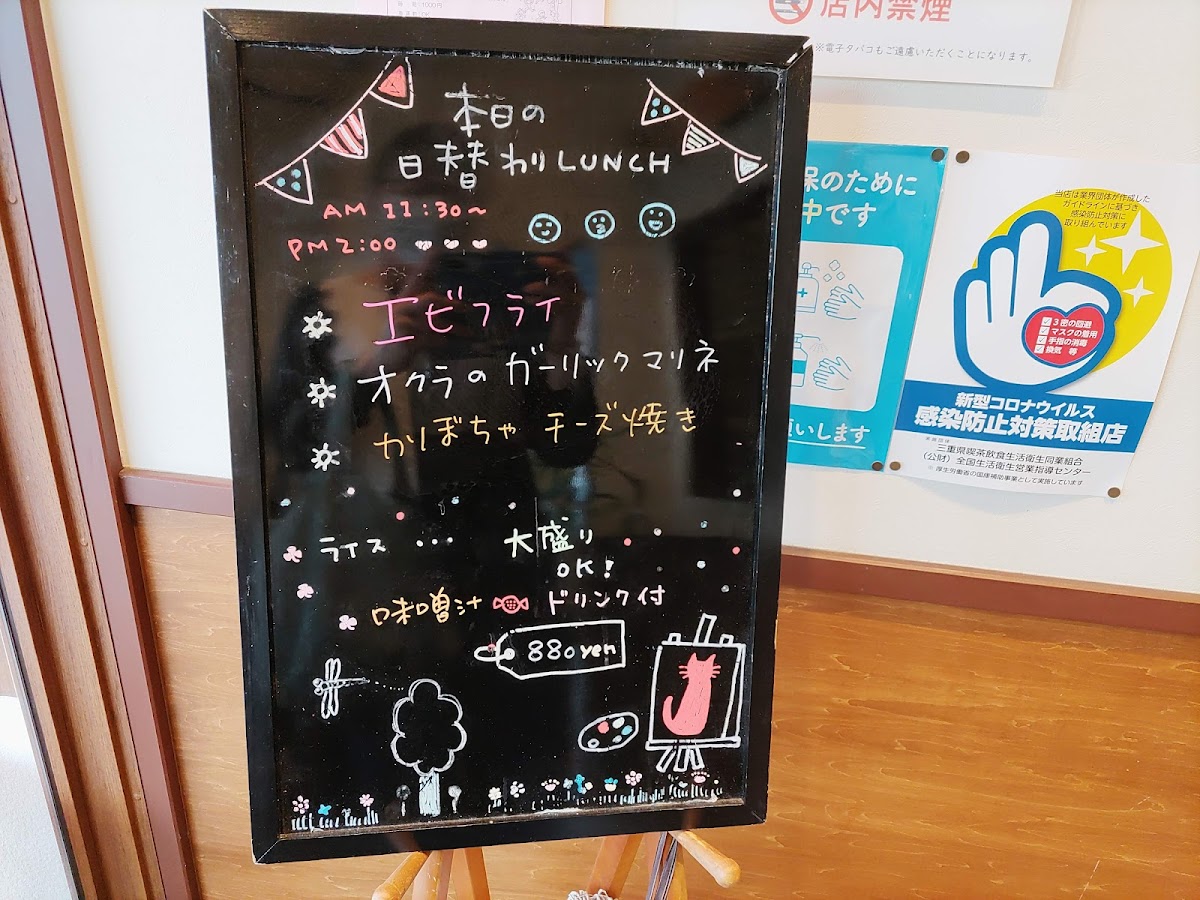 本日の
日替わりLUNCH
AM 11:30~
PM 2:00
エビフライ
オクラの ガーリックマリネ
かぼちゃ チーズ焼き
ライス ・・・ 大盛り
OK!
味噌汁 ドリンク付
880yen
店内禁煙
※電子タバコもご遠慮いただくことになります。
のために
中です
願いします
当店は業界団体が作成した
ガイドラインに基づき
感染防止対策に
取り組んでいます
3密の回避
マスクの着用
手指の消毒
換気 等
新型コロナウイルス
感染防止対策取組店
三重県喫茶飲食生活衛生同業組合
(公財)全国生活衛生営業指導センター
※厚生労働省の国庫補助事業として実施しています